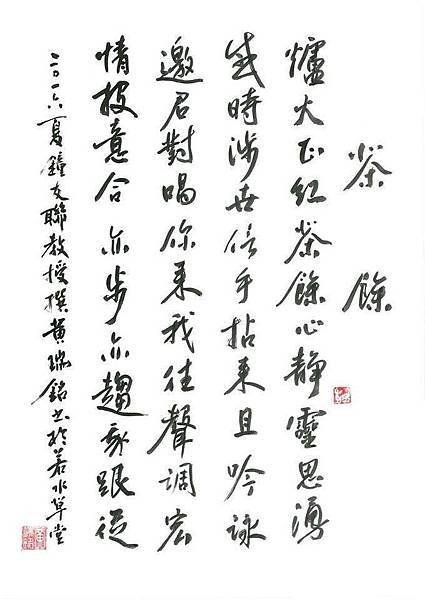 茶餘
爐火正紅茶餘心靜靈思湧
感時涉世信手拈来且吟詠
邀君對唱你来我往聲調宏
情投意合亦步亦趨跟從
二〇一六夏鐘友聯教授撰黃瑞銘书於若水草堂